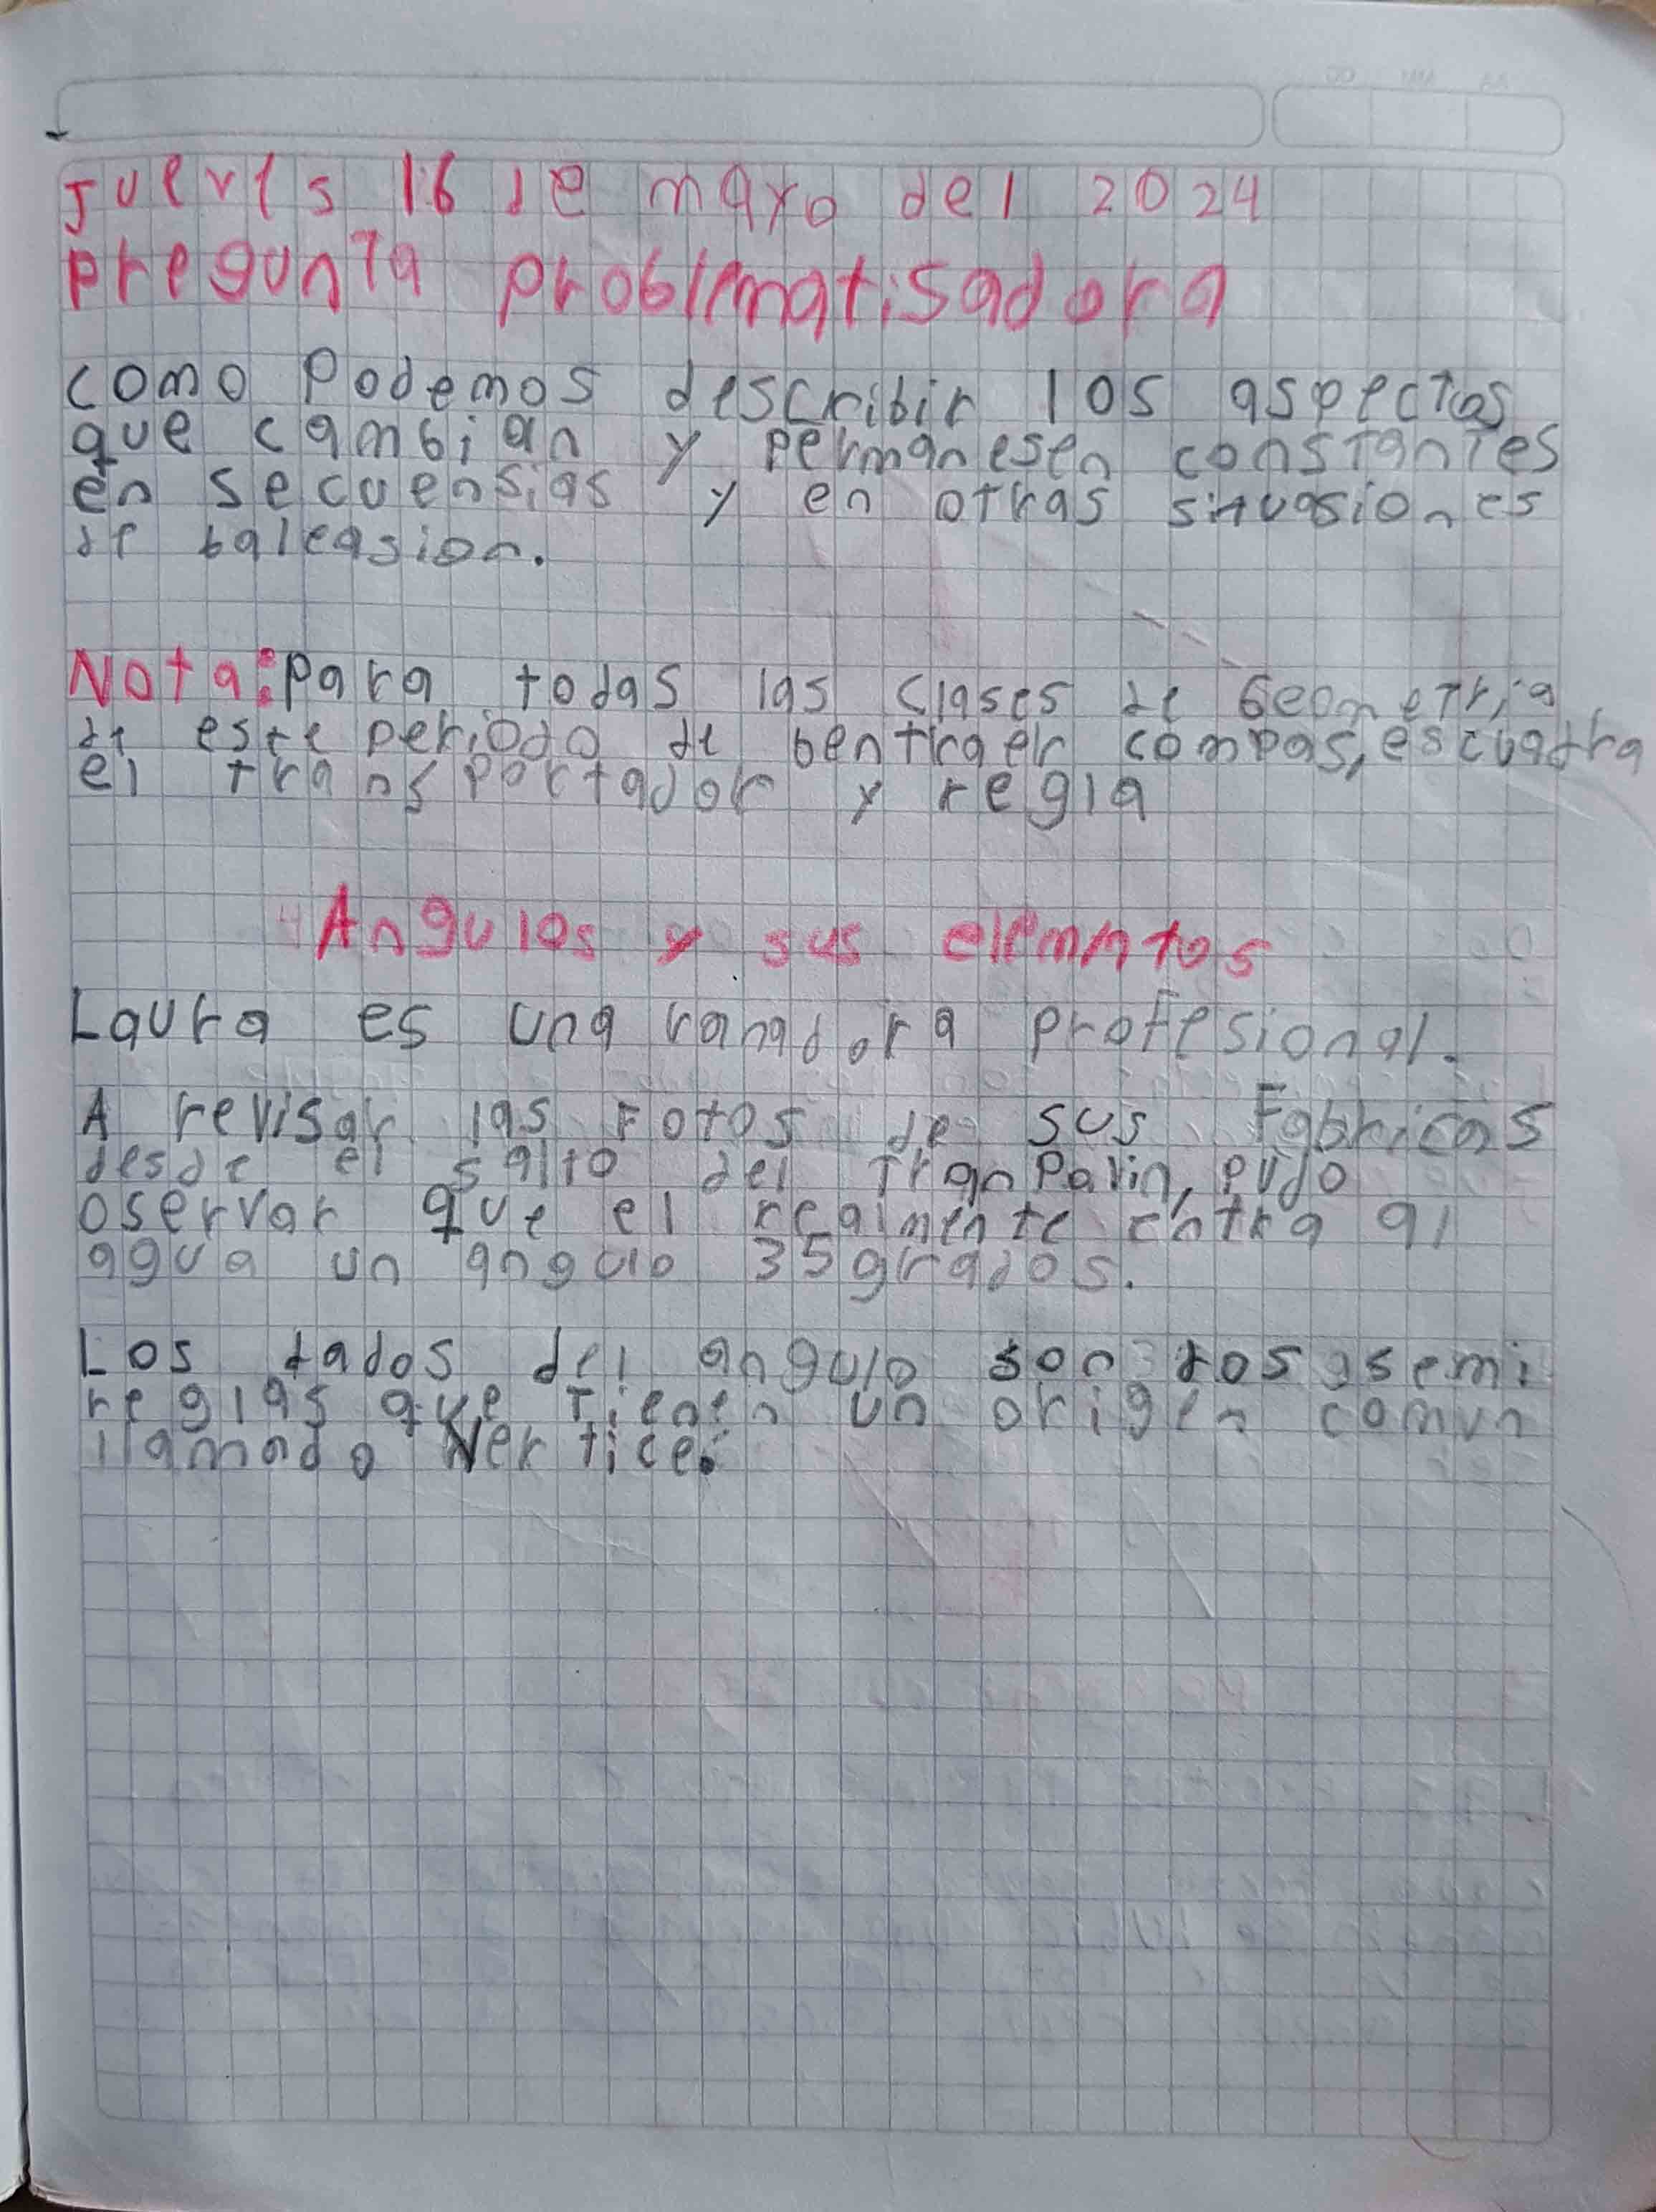 Jueves 16 de mayo del 2024
Pregunta problematisadora
como Podemos describir los aspectos
que cambian y permanesen constantes
en secuensias y en otras situasiones
de baleasion.
Nota: Para todas las clases de Geometria
de este periodo de bentraer compas, escuadra
el transportador y regla
Angulos y sus elemntos
Laura es una vanadora profesional.
A revisar las Fotos de sus Fabricas
desde el salto del tranPavin, pudo
oservar que el realmente entra al
agua un angulo 35grados.
Los dados del angulo son dos semi
reglas que tienen un origen comun
llamado Vertice.